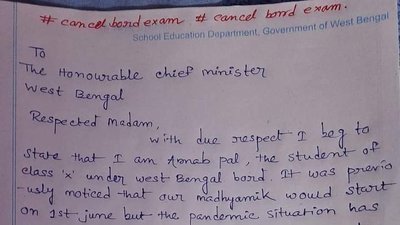 # cancel bord exam # cancel bord exam.
School Education Department, Government of West Bengal
To
The Honourable chief minister
West Bengal
Respected Madam,
with due respect I beg to
state that I am Arnab pal, the student of
class 'x' under west Bengal bord. It was previo
-usly noticed that our madhyamik would start
on 1st june but the pandemic situation has